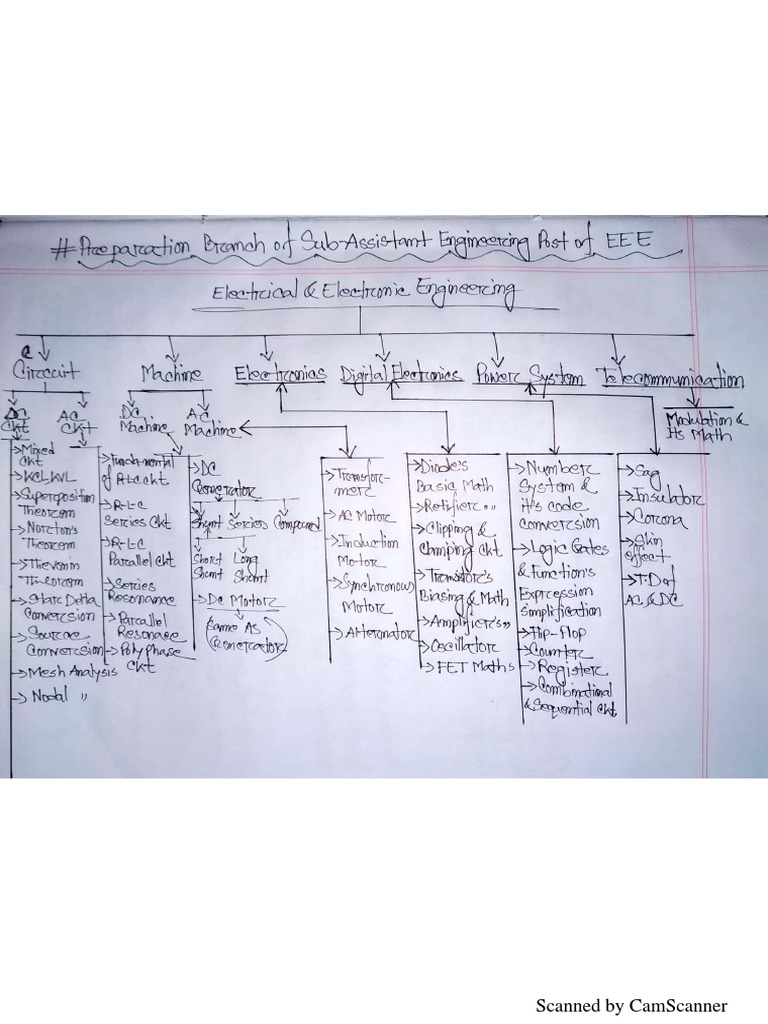 # Preparation Branch of Sub-Assistant Engineering Post of EEE
Electrical & Electronic Engineering
Circuit
Machine
Electronics
Digital Electronics
Power System
Telecommunication
DC
Ckt
AC
Ckt
DC
Machine
AC
Machine
Modulation &
Its Math
→Mixed
Ckt
→KCL, KVL
→Superposition
Theorem
→Norton's
Theorem
→Thevenin
Theorem
→Star Delta
Conversion
→Source
Conversion
→Mesh Analysis
→Nodal "
→Fundamental
of A.C ckt
→R-L-C
Series Ckt
→R-L-C
Parallel Ckt
→Series
Resonance
→Parallel
Resonase
→Poly Phase
Ckt
→DC
Generator
Shunt Series Compound
Short
Shunt
Long
Shunt
→DC Motor
(Same As
Generator)
→Transfor-
mer
→AC Motor
→Induction
Motor
→Synchronous
Motor
→Alternator
→Diode's
Basic Math
→Retifier "
→Clipping &
Clamping Ckt
→Transistor's
Biasing & Math
→Amplifier's "
→Oscillator
→FET Maths
→Number
System &
it's code
conversion
→Logic Gates
& Function's
Expression
Simplification
→Flip-flop
→Counter
→Register
→Combinational
& Sequential Ckt
→Sag
→Insulator
→Corona
→Skin
effect
→T.D of
AC & DC
Scanned by CamScanner